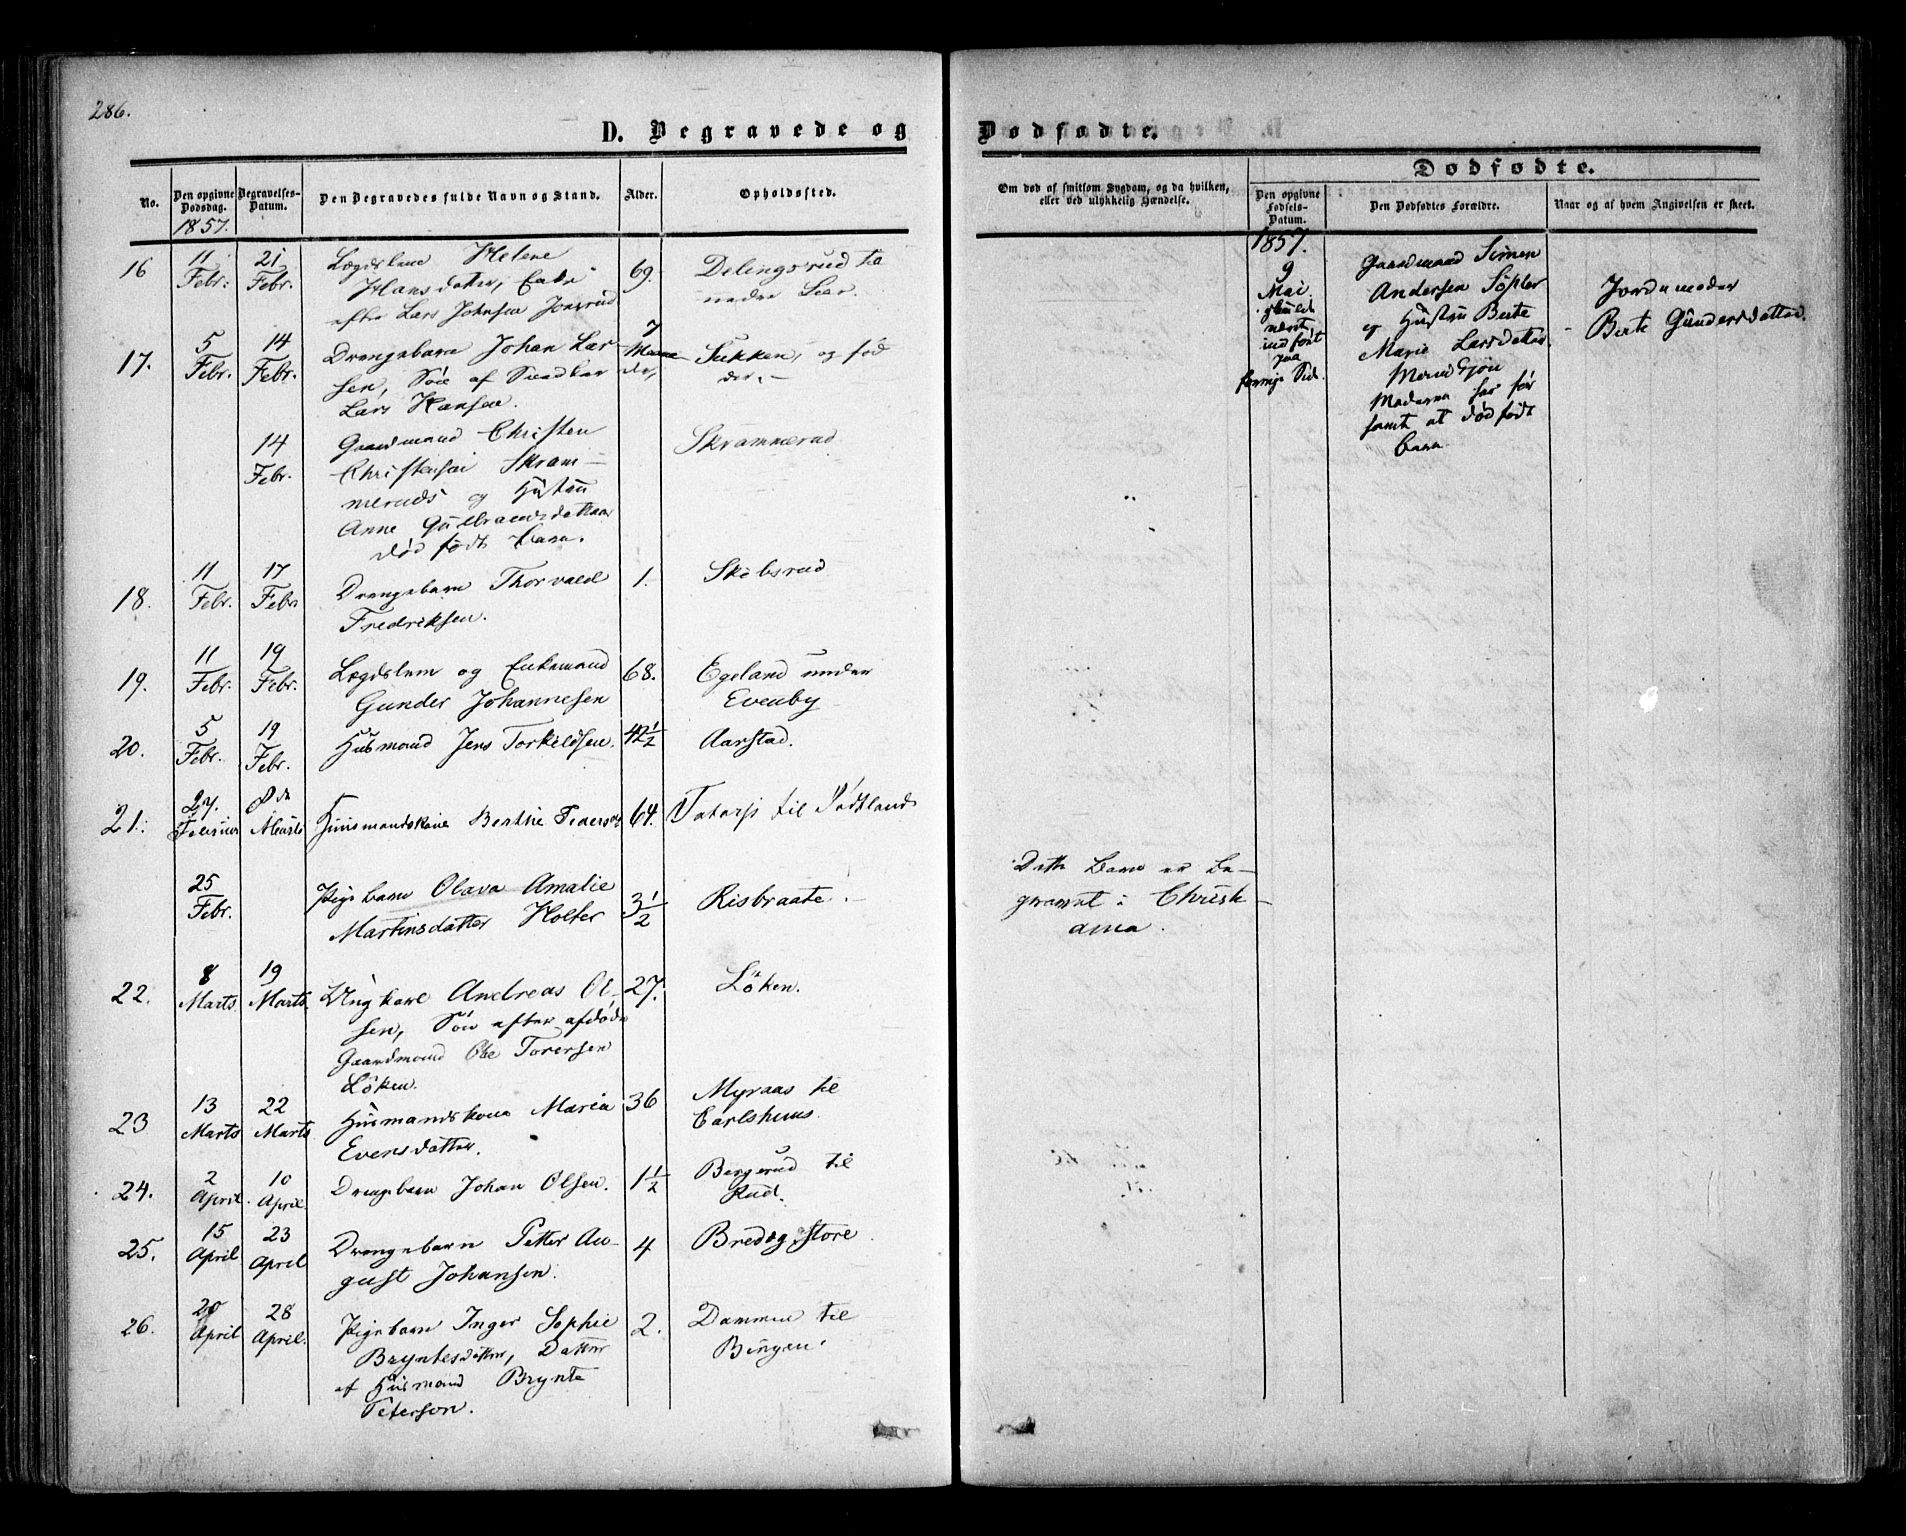 286.
D. Begravede og
No.
Den opgivne Dødsdag.
Begravelses-Datum.
Den Begravedes fulde Navn og Stand.
Alder.
Opholdssted.
1857.
16
11 Febr.
21 Febr.
Lægdslem Helene
Hansdatter, Enke
efter Lars Johnsen
69.
Delingsrud til
nedre Lier.
17.
5 Febr.
14 Febr.
Drengebarn Johan Lar-
sen, Søn af
Lars Hansen.
7
Sukken, og fød
der.
14 Febr.
Gaardmand Christen
Christensen Skram-
meruds og Hustru
Anne Gulbrandsdatters
død født barn.
Skrammerud
18.
11 Febr.
17 Febr
Drengebarn Thorvald
Fredriksen.
1.
Skibsrud
19.
11 Febr.
19 Febr.
Lægdslem og Enkemand
Gunder Johannesen
68.
Egeland under
Evenby
20.
5 Febr.
19 Febr.
Husmand Jens Torkildsen.
42 1/2
Aarstad.
21.
27. Februar
8de Marts
Huusmandskone Berthe Peders
64.
til
25 Febr.
Pigebarn Olava Amalie
Martinsdatter Holter
3 1/2
Risbraate.
22.
8 Marts
19 Marts
Ungkarl Andreas Ol-
sen, Søn efter afdøde
Gaardmand Ole Toresen
Löken.
27.
Löken.
23
13 Marts
22 Marts
Husmandskone Maria
Evensdatter.
36
Myraas til
Carlshuus.
24.
2 April
10 April.
Drengebarn Johan Olsen.
1 1/2
Bergerud til
Rud.
25.
15 April
23 April
Drengebarn Petter Au-
gust Johansen.
4
Bredeg Store
26.
20 April
28 April.
Pigebarn Inger Sophie
Bryntesdatter, Datter
af Husmand Brynte
Peterson.
2.
Dammen til
Bingen.
Dødfødte.
Om død af smitsom Sygdom, og da hvilken,
eller ved ulykkelig Hændelse.
Dødfødte.
Den opgivne Fødsels-Datum.
Den Dødfødtes Forældre.
Naar og af hvem Angivelsen er skeet.
1857.
9
Mai
skulde
været
indført
paa
forrige Side.
Gaardmand Simen
Andersen
og Hustru Berte
Marie Larsdatter
Moderen har før
samt at dødfødt
barn.
Jordemoder
Berte Gundersdatter
Dette Barn er be-
gravet i Christi-
ania.